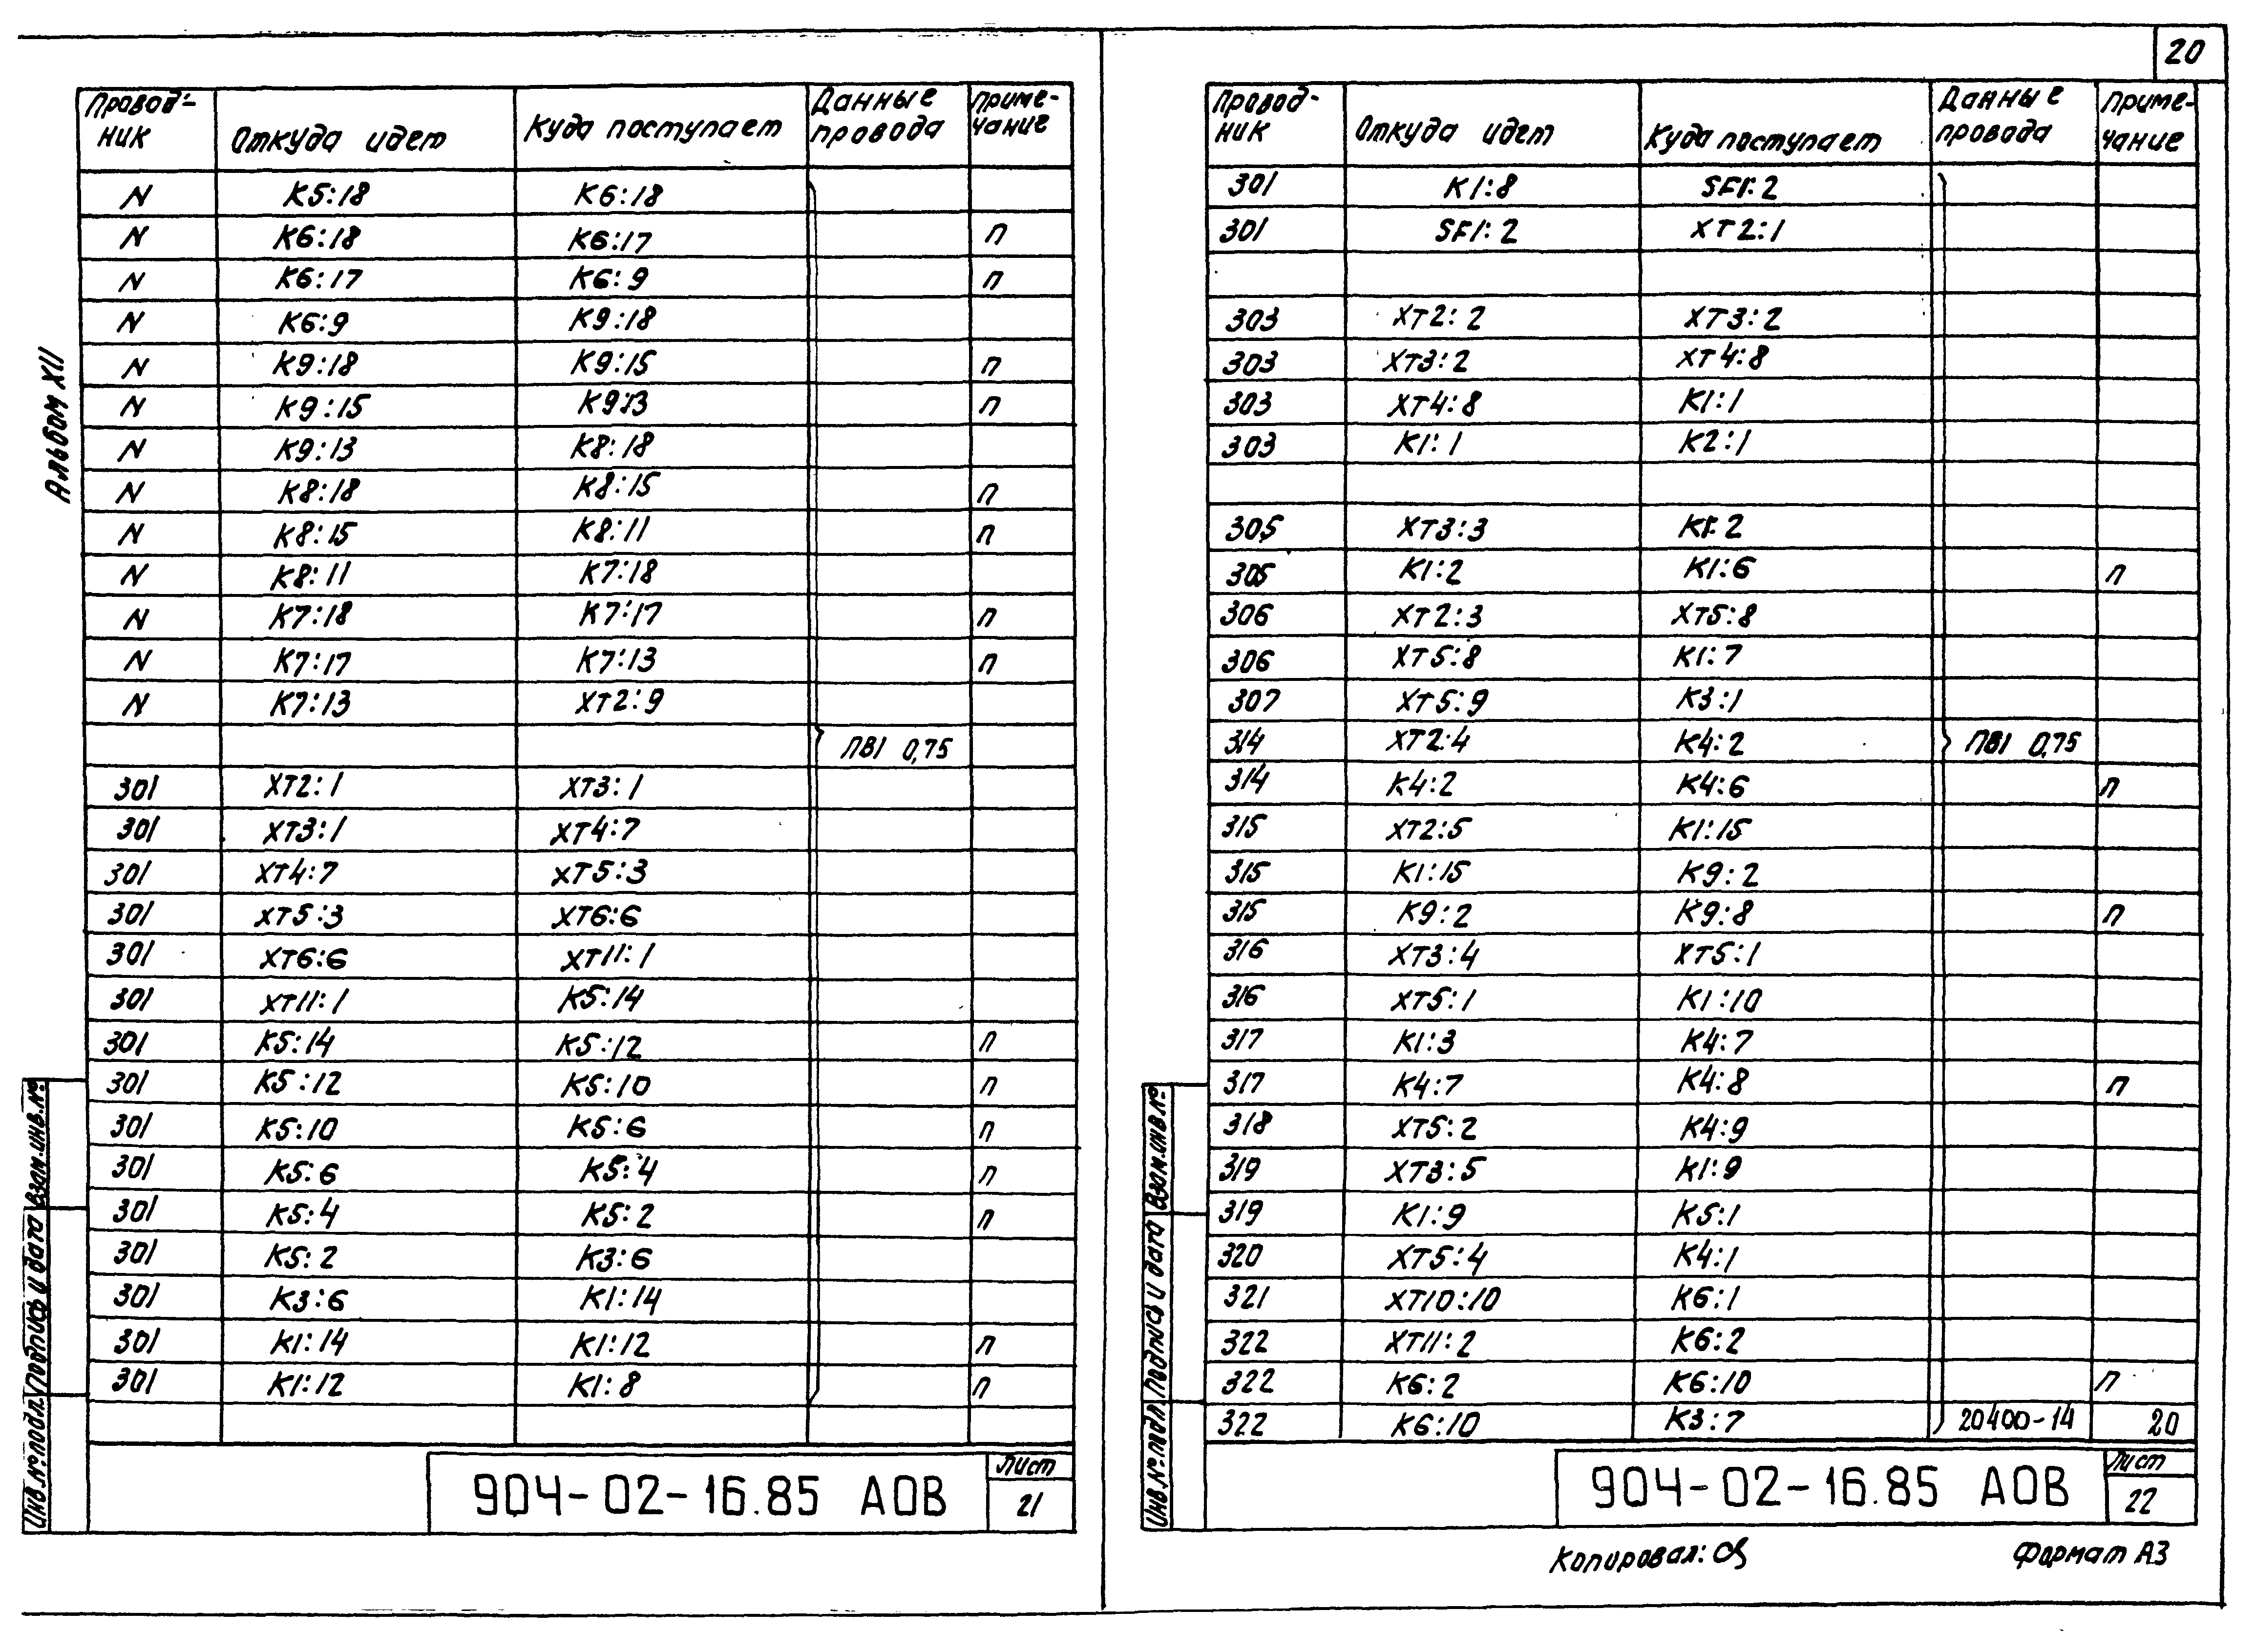 20
Альбом XII
Провод- Откуда идет Куда поступает Данные Приме-
ник провода чание
N K5:18 K6:18
N K6:18 K6:17 п
N K6:17 K6:9 п
N K6:9 K9:18
N K9:18 K9:15 п
N K9:15 K9:13 п
N K9:13 K8:18
N K8:18 K8:15 п
N K8:15 K8:11 п
N K8:11 K7:18
N K7:18 K7:17 п
N K7:17 K7:13 п
N K7:13 XT2:9
ПВ1 0,75
301 XT2:1 XT3:1
301 XT3:1 XT4:7
301 XT4:7 XT5:3
301 XT5:3 XT6:6
301 XT6:6 XT11:1
301 XT11:1 K5:14
301 K5:14 K5:12 п
301 K5:12 K5:10 п
301 K5:10 K5:6 п
301 K5:6 K5:4 п
301 K5:4 K5:2 п
301 K5:2 K3:6
301 K3:6 K1:14
301 K1:14 K1:12 п
301 K1:12 K1:8 п
904-02-16.85 АОВ
Лист
21
Инв.№подл. Подпись и дата Взам.инв.№
Провод- Откуда идет Куда поступает Данные Приме-
ник провода чание
301 K1:8 SF1:2
301 SF1:2 XT2:1
303 XT2:2 XT3:2
303 XT3:2 XT4:8
303 XT4:8 K1:1
303 K1:1 K2:1
305 XT3:3 K1:2
305 K1:2 K1:6 п
306 XT2:3 XT5:8
306 XT5:8 K1:7
307 XT5:9 K3:1
314 XT2:4 K4:2 ПВ1 0,75
314 K4:2 K4:6 п
315 XT2:5 K1:15
315 K1:15 K9:2
315 K9:2 K9:8 п
316 XT3:4 XT5:1
316 XT5:1 K1:10
317 K1:3 K4:7
317 K4:7 K4:8 п
318 XT5:2 K4:9
319 XT3:5 K1:9
319 K1:9 K5:1
320 XT5:4 K4:1
321 XT10:10 K6:1
322 XT11:2 K6:2
322 K6:2 K6:10 п
322 K6:10 K3:7 20400-14 20
904-02-16.85 АОВ
Лист
22
Инв.№подл. Подпись и дата Взам.инв№
Копировал: Формат А3